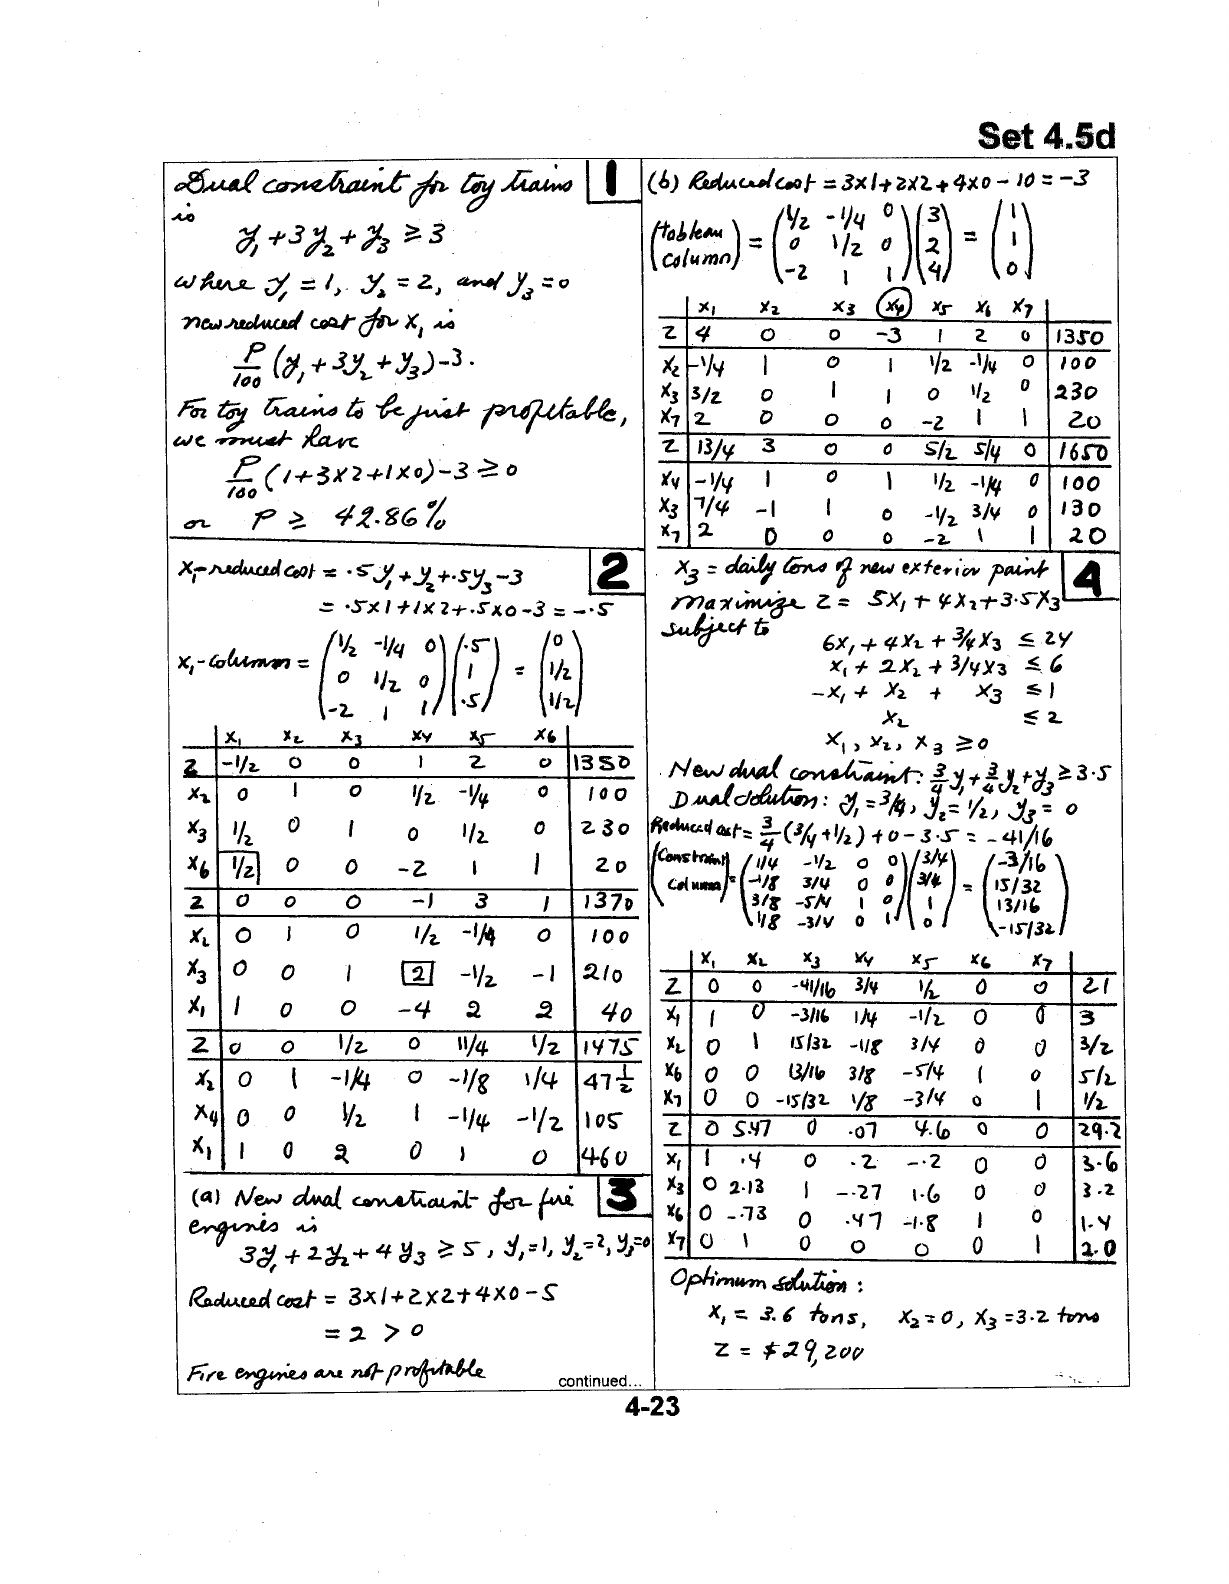 Set 4.5d
1
Dual constraint for toy trains
is
y1 + 3y2 + y3 ≥ 3
where y1 = 1, y2 = 2, and y3 = 0
new reduced cost for x1 is
P/100 (y1 + 3y2 + y3) - 3.
For toy trains to be just profitable,
we must have
P/100 (1+3x2+1x0) - 3 ≥ 0
or P ≥ 42.86%
2
x1-reduced cost = .5y1 + y2 + .5y3 - 3
= .5x1 + 1x2 + .5x0 - 3 = -.5
x1-column = (1/2 -1/4 0) (.5) = (0)
(0 1/2 0) (1) (1/2)
(-2 1 1) (.5) (1/2)
x1 x2 x3 x4 x5 x6
z -1/2 0 0 1 2 0 1350
x2 0 1 0 1/2 -1/4 0 100
x3 1/2 0 1 0 1/2 0 230
x6 1/2 0 0 -2 1 1 20
z 0 0 0 -1 3 1 1370
x2 0 1 0 1/2 -1/4 0 100
x3 0 0 1 2 -1/2 -1 210
x1 1 0 0 -4 2 2 40
z 0 0 1/2 0 11/4 1/2 1475
x2 0 1 -1/4 0 -1/8 1/4 47 1/2
x4 0 0 1/2 1 -1/4 -1/2 105
x1 1 0 2 0 1 0 460
3
(a) New dual constraint for fire
engines is
3y1 + 2y2 + 4y3 ≥ 5, y1=1, y2=2, y3=0
Reduced cost = 3x1 + 2x2 + 4x0 - 5
= 2 > 0
Fire engines are not profitable
continued...
(b) Reduced cost = 3x1 + 2x2 + 4x0 - 10 = -3
(tableau column) = (1/2 -1/4 0) (3) = (1)
(0 1/2 0) (2) (1)
(-2 1 1) (4) (0)
x1 x2 x3 x4 x5 x6 x7
z 4 0 0 -3 1 2 0 1350
x2 -1/4 1 0 1 1/2 -1/4 0 100
x3 3/2 0 1 1 0 1/2 0 230
x7 2 0 0 0 -2 1 1 20
z 13/4 3 0 0 5/2 5/4 0 1650
x4 -1/4 1 0 1 1/2 -1/4 0 100
x3 7/4 -1 1 0 -1/2 3/4 0 130
x7 2 0 0 0 -2 1 1 20
4
x3 = daily tons of new exterior paint
maximize z = 5x1 + 4x2 + 3.5x3
subject to
6x1 + 4x2 + 3/4x3 ≤ 24
x1 + 2x2 + 3/4x3 ≤ 6
-x1 + x2 + x3 ≤ 1
x2 ≤ 2
x1, x2, x3 ≥ 0
New dual constraint: 3/4 y1 + 3/4 y2 + y3 ≥ 3.5
Dual solution: y1 = 3/4, y2 = 1/2, y3 = 0
Reduced cost = 3/4 (3/4 + 1/2) + 0 - 3.5 = -41/16
(Constraint Column) = (1/4 -1/2 0 0) (3/4) = (-3/16)
(-1/8 3/4 0 0) (3/4) (15/32)
(3/8 -5/4 1 0) (1) (13/16)
(1/8 -3/4 0 1) (0) (-15/32)
x1 x2 x3 x4 x5 x6 x7
z 0 0 -41/16 3/4 1/2 0 0 21
x1 1 0 -3/16 1/4 -1/2 0 0 3
x2 0 1 15/32 -1/8 3/4 0 0 3/2
x6 0 0 13/16 3/8 -5/4 1 0 5/2
x7 0 0 -15/32 1/8 -3/4 0 1 1/2
z 0 5.47 0 .07 4.6 0 0 29.2
x1 1 .4 0 .2 -.2 0 0 3.6
x3 0 2.13 1 -.27 1.6 0 0 3.2
x6 0 -.73 0 .47 -1.8 1 0 1.4
x7 0 1 0 0 0 0 1 2.0
Optimum solution:
x1 = 3.6 tons, x2 = 0, x3 = 3.2 tons
z = $29,200
4-23